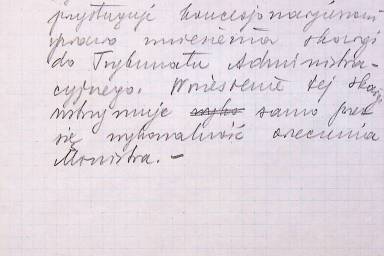 przysługuje koncesjonarjuszowi
prawo wniesienia skargi
do Trybunału Administra-
cyjnego. Wniesienie tej skargi
wstrzymuje samo przez
się wykonalność orzeczenia
Ministra. –